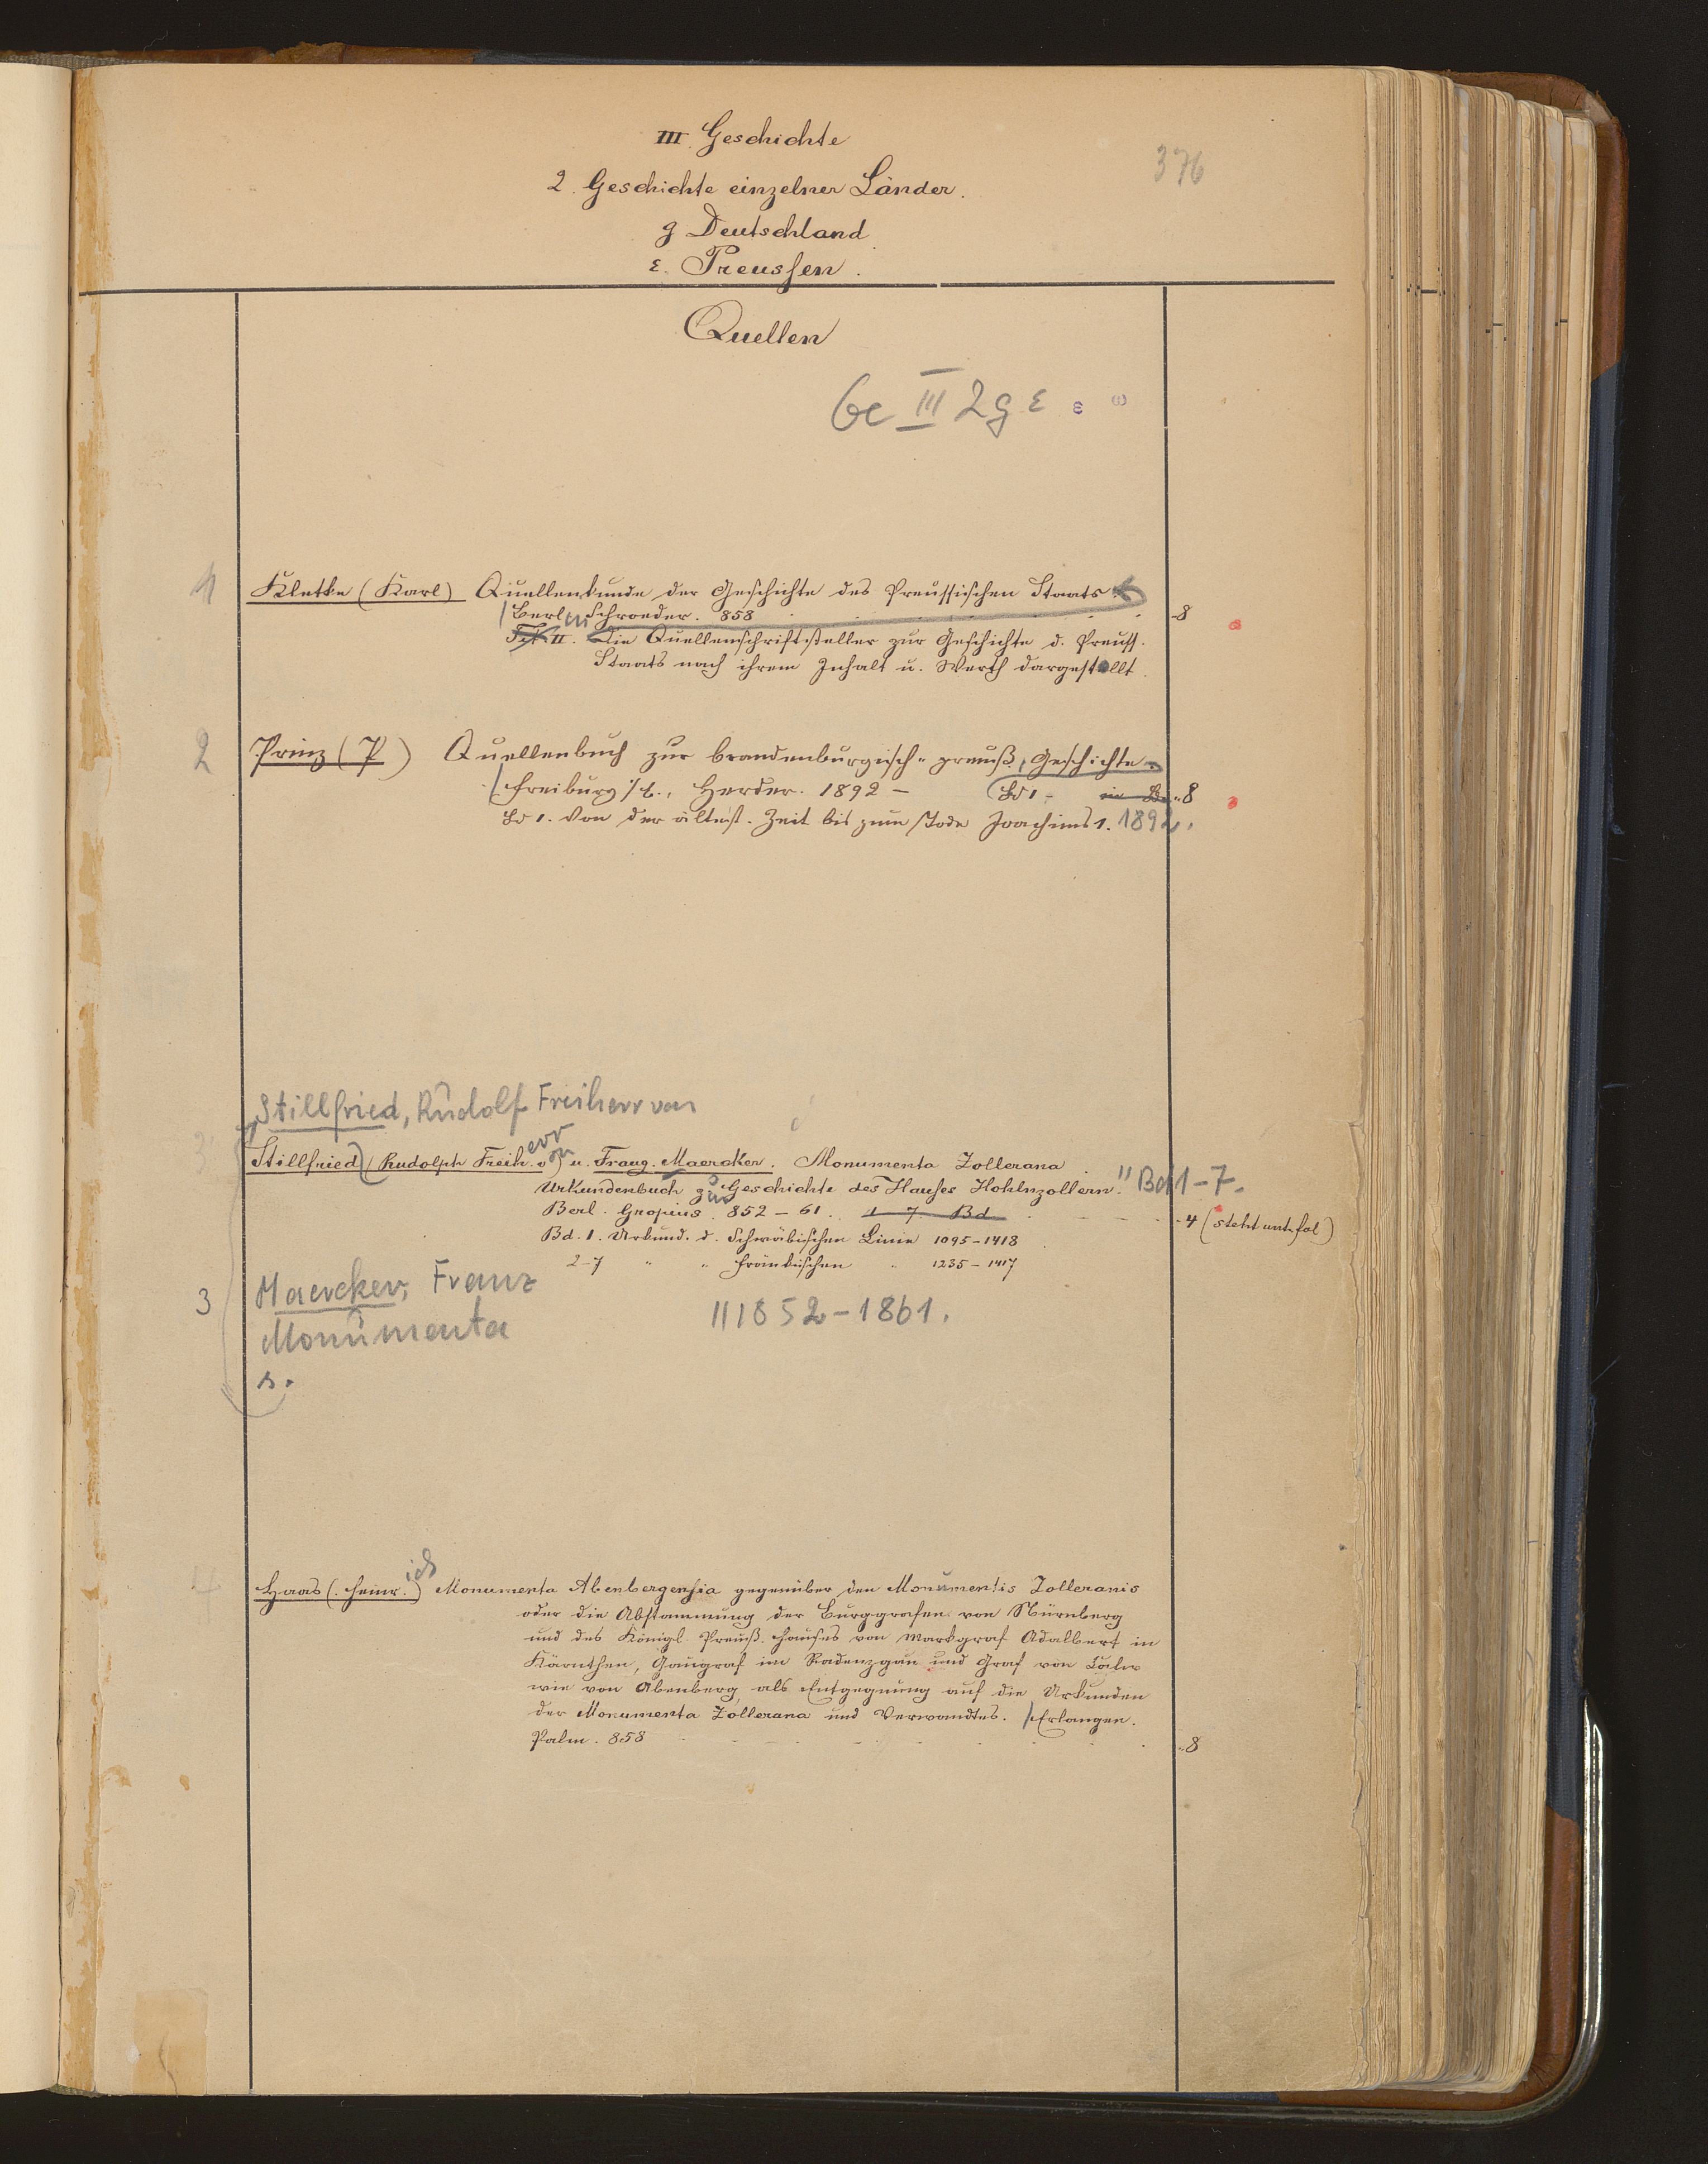 III. Geschichte
376
2. Geschichte einzelner Länder.
g Deutschland
ε. Preussen.
Quellen
Ge III 2 g ε
1 Kletke (Karl) Quellenkunde der Geschichte des Preussischen Staats.
Berlin Schroeder. 858 8
II. Die Quellenschriftsteller zur Geschichte d. Preuss.
Staats nach ihrem Inhalt u. Werth dargestellt.
2 Prinz (P) Quellenbuch zur brandenburgisch-preuß. Geschichte
Freiburg i/B., Herder. 1892 - Bd 1 - 8
Bd 1. Von der ältest. Zeit bis zum Tode Joachims 1. 1892.
Stillfried, Rudolf Freiherr von
3 Stillfried (Rudolph Freiherr von) u. Franz. Maercker. Monumenta Zollerana
Urkundenbuch zur Geschichte des Hauses Hohlnzollern. Bd 1-7.
Berl. Gropius. 852-61. 1-7. Bd 4 (steht unt. fol)
Bd. 1. Urkund. d. Schwäbischen Linie 1095-1418
2-7 " " fränkischen " 1235-1417
3 Maercker, Franz
Monumenta 1852-1861.
s.
4 Haas (Heinrich) Monumenta Abenbergensia gegenüber den Monumentis Zolleranis
oder die Abstammung der Burggrafen von Nürnberg
und des Königl. Preuß. Hauses von Markgraf Adalbert in
Kärnthen, Gaugraf im Radenzgau und Graf von Calw
wie von Abenberg als Entgegnung auf die Urkunden
der Monumenta Zollerana und Verwandtes. Erlangen.
Palm. 858 8